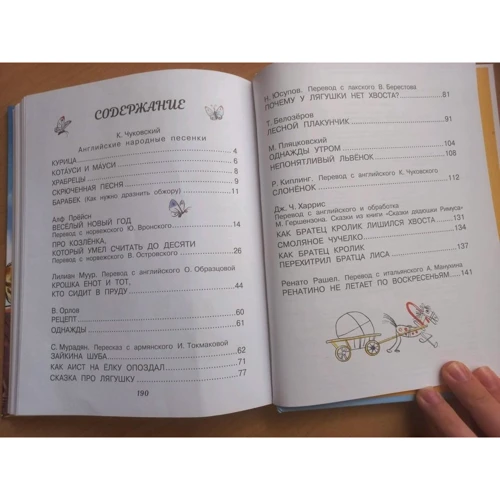 СОДЕРЖАНИЕ
К. Чуковский
Английские народные песенки
КУРИЦА 4
КОТАУСИ И МАУСИ 6
ХРАБРЕЦЫ 8
СКРЮЧЕННАЯ ПЕСНЯ 9
БАРАБЕК (Как нужно дразнить обжору) 11
Алф Прёйсн
ВЕСЁЛЫЙ НОВЫЙ ГОД
Перевод с норвежского Ю. Вронского 14
ПРО КОЗЛЁНКА,
КОТОРЫЙ УМЕЛ СЧИТАТЬ ДО ДЕСЯТИ
Перевод с норвежского В. Островского 26
Лилиан Муур. Перевод с английского О. Образцовой
КРОШКА ЕНОТ И ТОТ,
КТО СИДИТ В ПРУДУ 44
В. Орлов
РЕЦЕПТ 60
ОДНАЖДЫ 61
С. Мурадян. Пересказ с армянского И. Токмаковой
ЗАЙКИНА ШУБА 62
КАК АИСТ НА ЁЛКУ ОПОЗДАЛ 71
СКАЗКА ПРО ЛЯГУШКУ 77
190
Н. Юсупов. Перевод с лакского В. Берестова
ПОЧЕМУ У ЛЯГУШКИ НЕТ ХВОСТА? 81
Т. Белозёров
ЛЕСНОЙ ПЛАКУНЧИК 91
М. Пляцковский
ОДНАЖДЫ УТРОМ 104
НЕПОНЯТЛИВЫЙ ЛЬВЁНОК 108
Р. Киплинг. Перевод с английского К. Чуковского
СЛОНЁНОК 112
Дж. Ч. Харрис
Перевод с английского и обработка
М. Гершензона. Сказки из книги «Сказки дядюшки Римуса»
КАК БРАТЕЦ КРОЛИК ЛИШИЛСЯ ХВОСТА 131
СМОЛЯНОЕ ЧУЧЕЛКО 134
КАК БРАТЕЦ КРОЛИК
ПЕРЕХИТРИЛ БРАТЦА ЛИСА 137
Ренато Рашел. Перевод с итальянского А. Махунина
РЕНАТИНО НЕ ЛЕТАЕТ ПО ВОСКРЕСЕНЬЯМ 141